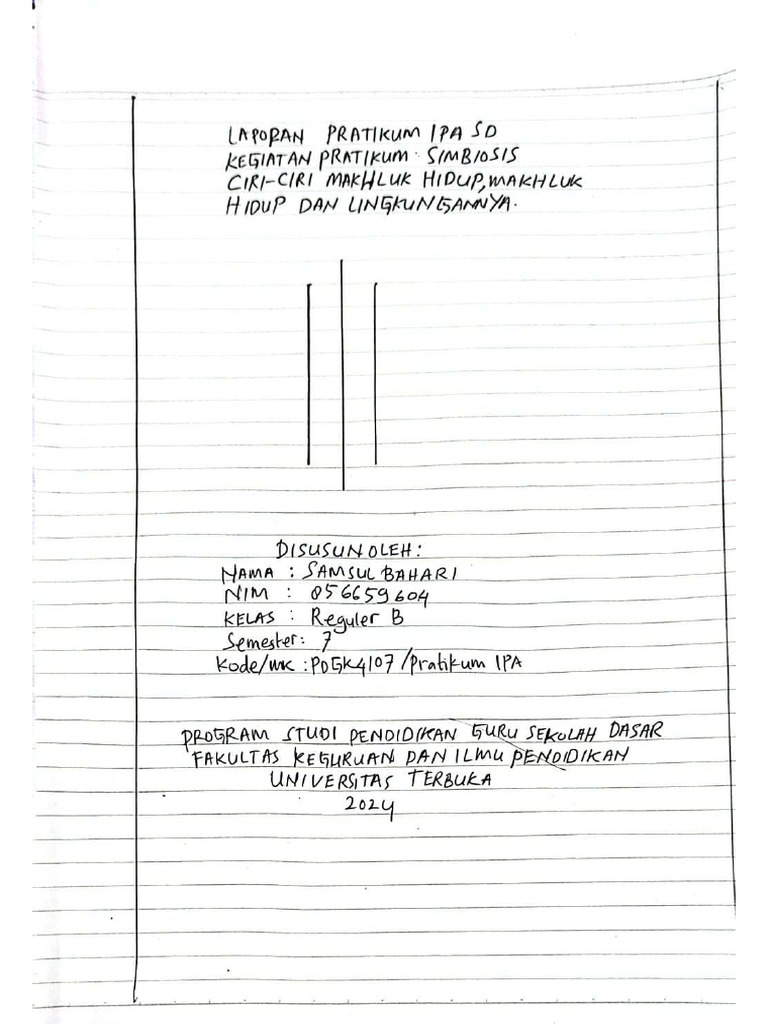 LAPORAN PRATIKUM IPA SD
KEGIATAN PRATIKUM SIMBIOSIS
CIRI-CIRI MAKHLUK HIDUP, MAKHLUK
HIDUP DAN LINGKUNGANNYA.
DISUSUN OLEH :
NAMA : SAMSUL BAHARI
NIM : 856659604
KELAS : Reguler B
Semester : 7
Kode/MK : PDGK4107 /Pratikum IPA
PROGRAM STUDI PENDIDIKAN GURU SEKOLAH DASAR
FAKULTAS KEGURUAN DAN ILMU PENDIDIKAN
UNIVERSITAS TERBUKA
2024